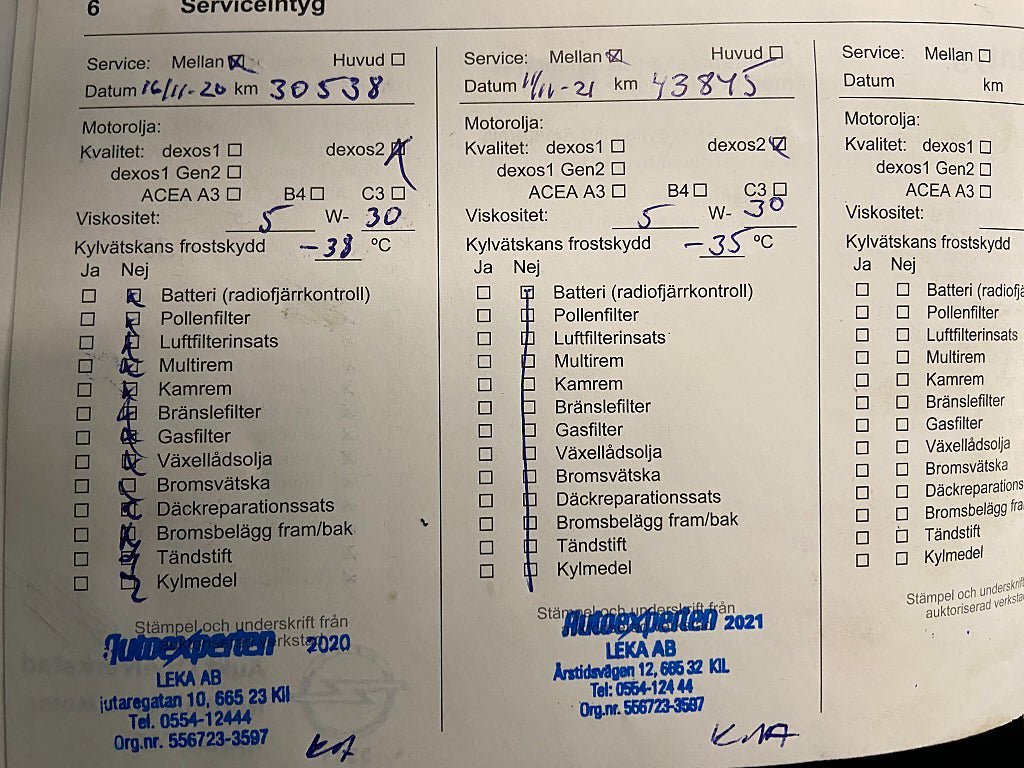 6 Serviceintyg
Service: Mellan Huvud
Datum 16/11-20 km 30538
Motorolja:
Kvalitet: dexos1 dexos2
dexos1 Gen2
ACEA A3 B4 C3
Viskositet: 5 W- 30
Kylvätskans frostskydd -38 °C
Ja Nej
Batteri (radiofjärrkontroll)
Pollenfilter
Luftfilterinsats
Multirem
Kamrem
Bränslefilter
Gasfilter
Växellådsolja
Bromsvätska
Däckreparationssats
Bromsbelägg fram/bak
Tändstift
Kylmedel
Stämpel och underskrift från
verkstad
Autoexperten 2020
LEKA AB
jutaregatan 10, 665 23 Kil
Tel. 0554-12444
Org.nr. 556723-3597
Service: Mellan Huvud
Datum 11/11-21 km 43845
Motorolja:
Kvalitet: dexos1 dexos2
dexos1 Gen2
ACEA A3 B4 C3
Viskositet: 5 W- 30
Kylvätskans frostskydd -35 °C
Ja Nej
Batteri (radiofjärrkontroll)
Pollenfilter
Luftfilterinsats
Multirem
Kamrem
Bränslefilter
Gasfilter
Växellådsolja
Bromsvätska
Däckreparationssats
Bromsbelägg fram/bak
Tändstift
Kylmedel
Stämpel och underskrift från
Autoexperten 2021
LEKA AB
Årstidsvägen 12, 665 32 KIL
Tel: 0554-124 44
Org.nr. 556723-3597
Service: Mellan
Datum km
Motorolja:
Kvalitet: dexos1
dexos1 Gen2
ACEA A3
Viskositet:
Kylvätskans frostskydd
Ja Nej
Batteri (radiofjä
Pollenfilter
Luftfilterinsats
Multirem
Kamrem
Bränslefilter
Gasfilter
Växellådsolja
Bromsvätska
Däckreparations
Bromsbelägg fra
Tändstift
Kylmedel
Stämpel och underskrift
auktoriserad verksta